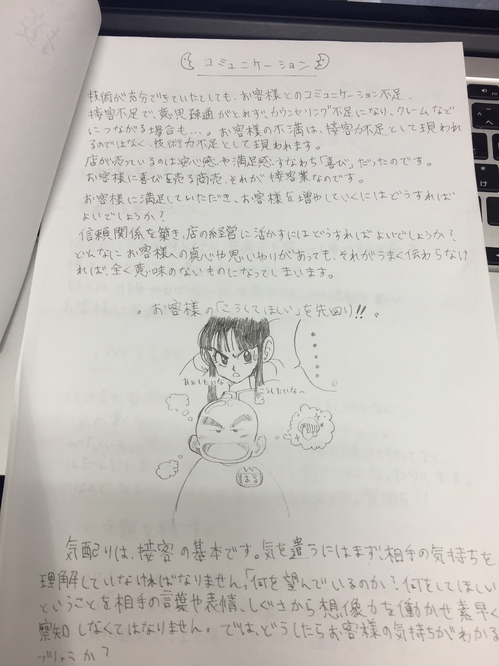 コミュニケーション
技術が充分できていたとしても、お客様とのコミュニケーション不足、
接客不足で、意思疎通がとれず、カウンセリング不足になり、クレームなど
につながる場合も…。お客様の不満は、接客力不足として現われ
るのではなく、技術力不足として現われます。
店が売っているのは安心感や満足感、すなわち「喜び」だったのです。
お客様に喜びを売る商売、それが接客業なのです。
お客様に満足していただき、お客様を増やしていくにはどうすれば
よいでしょうか?
信頼関係を築き、店の経営に活かすにはどうすればよいでしょうか?
どんなにお客様への真心や思いやりがあっても、それがうまく伝わらなけ
れば、全く意味のないものになってしまいます。
。お客様の「こうしてほしい」を先回り!!。
あぁしたいな
こうしたいな〜
はる
気配りは、接客の基本です。気を遣うにはまず、相手の気持ちを
理解していなければなりません。「何を望んでいるのか?何をしてほしい
ということを相手の言葉や表情、しぐさから想像力を働かせ素早く
察知しなくてはなりません。では、どうしたらお客様の気持ちがわかる
でしょうか?